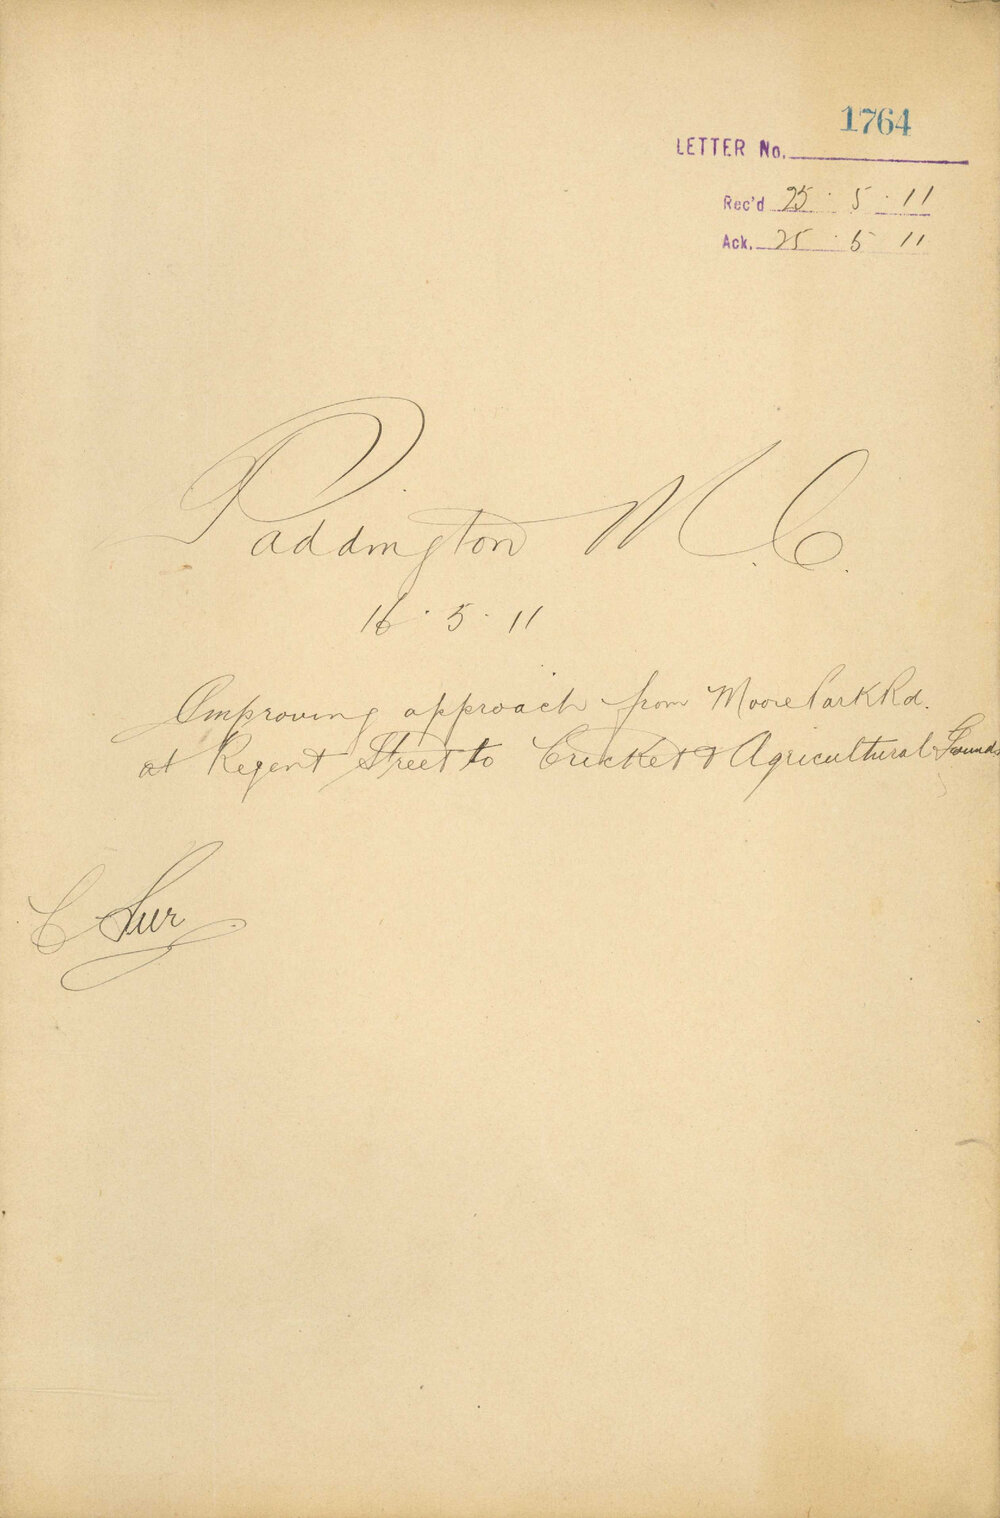 1764
LETTER No.
Rec'd 25 · 5 · 11
Ack. 25 · 5 11
Paddington M. C.
16 · 5 · 11
Improving approach from Moore Park Rd.
at Regent Street to Cricket & Agricultural Grounds
C Sur